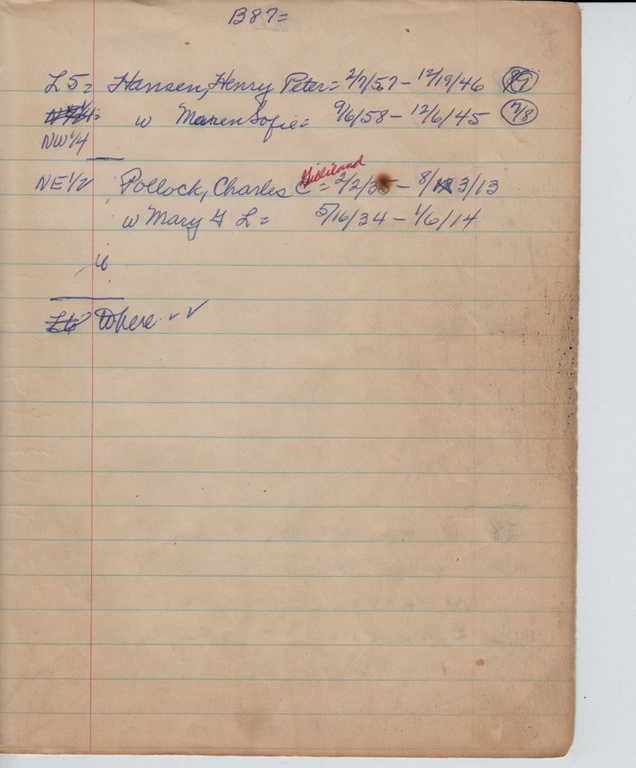 B87=
L5= Hansen, Henry Peter= 2/7/57- 12/19/46 89
w Maren Sofie= 9/6/58- 12/6/45 7/8
NW 1/4
Gilliland
NE 1/2 Pollock, Charles C= 2/2/35- 8/13/13
w Mary G L= 5/16/34- 1/6/14
w
L6 Where